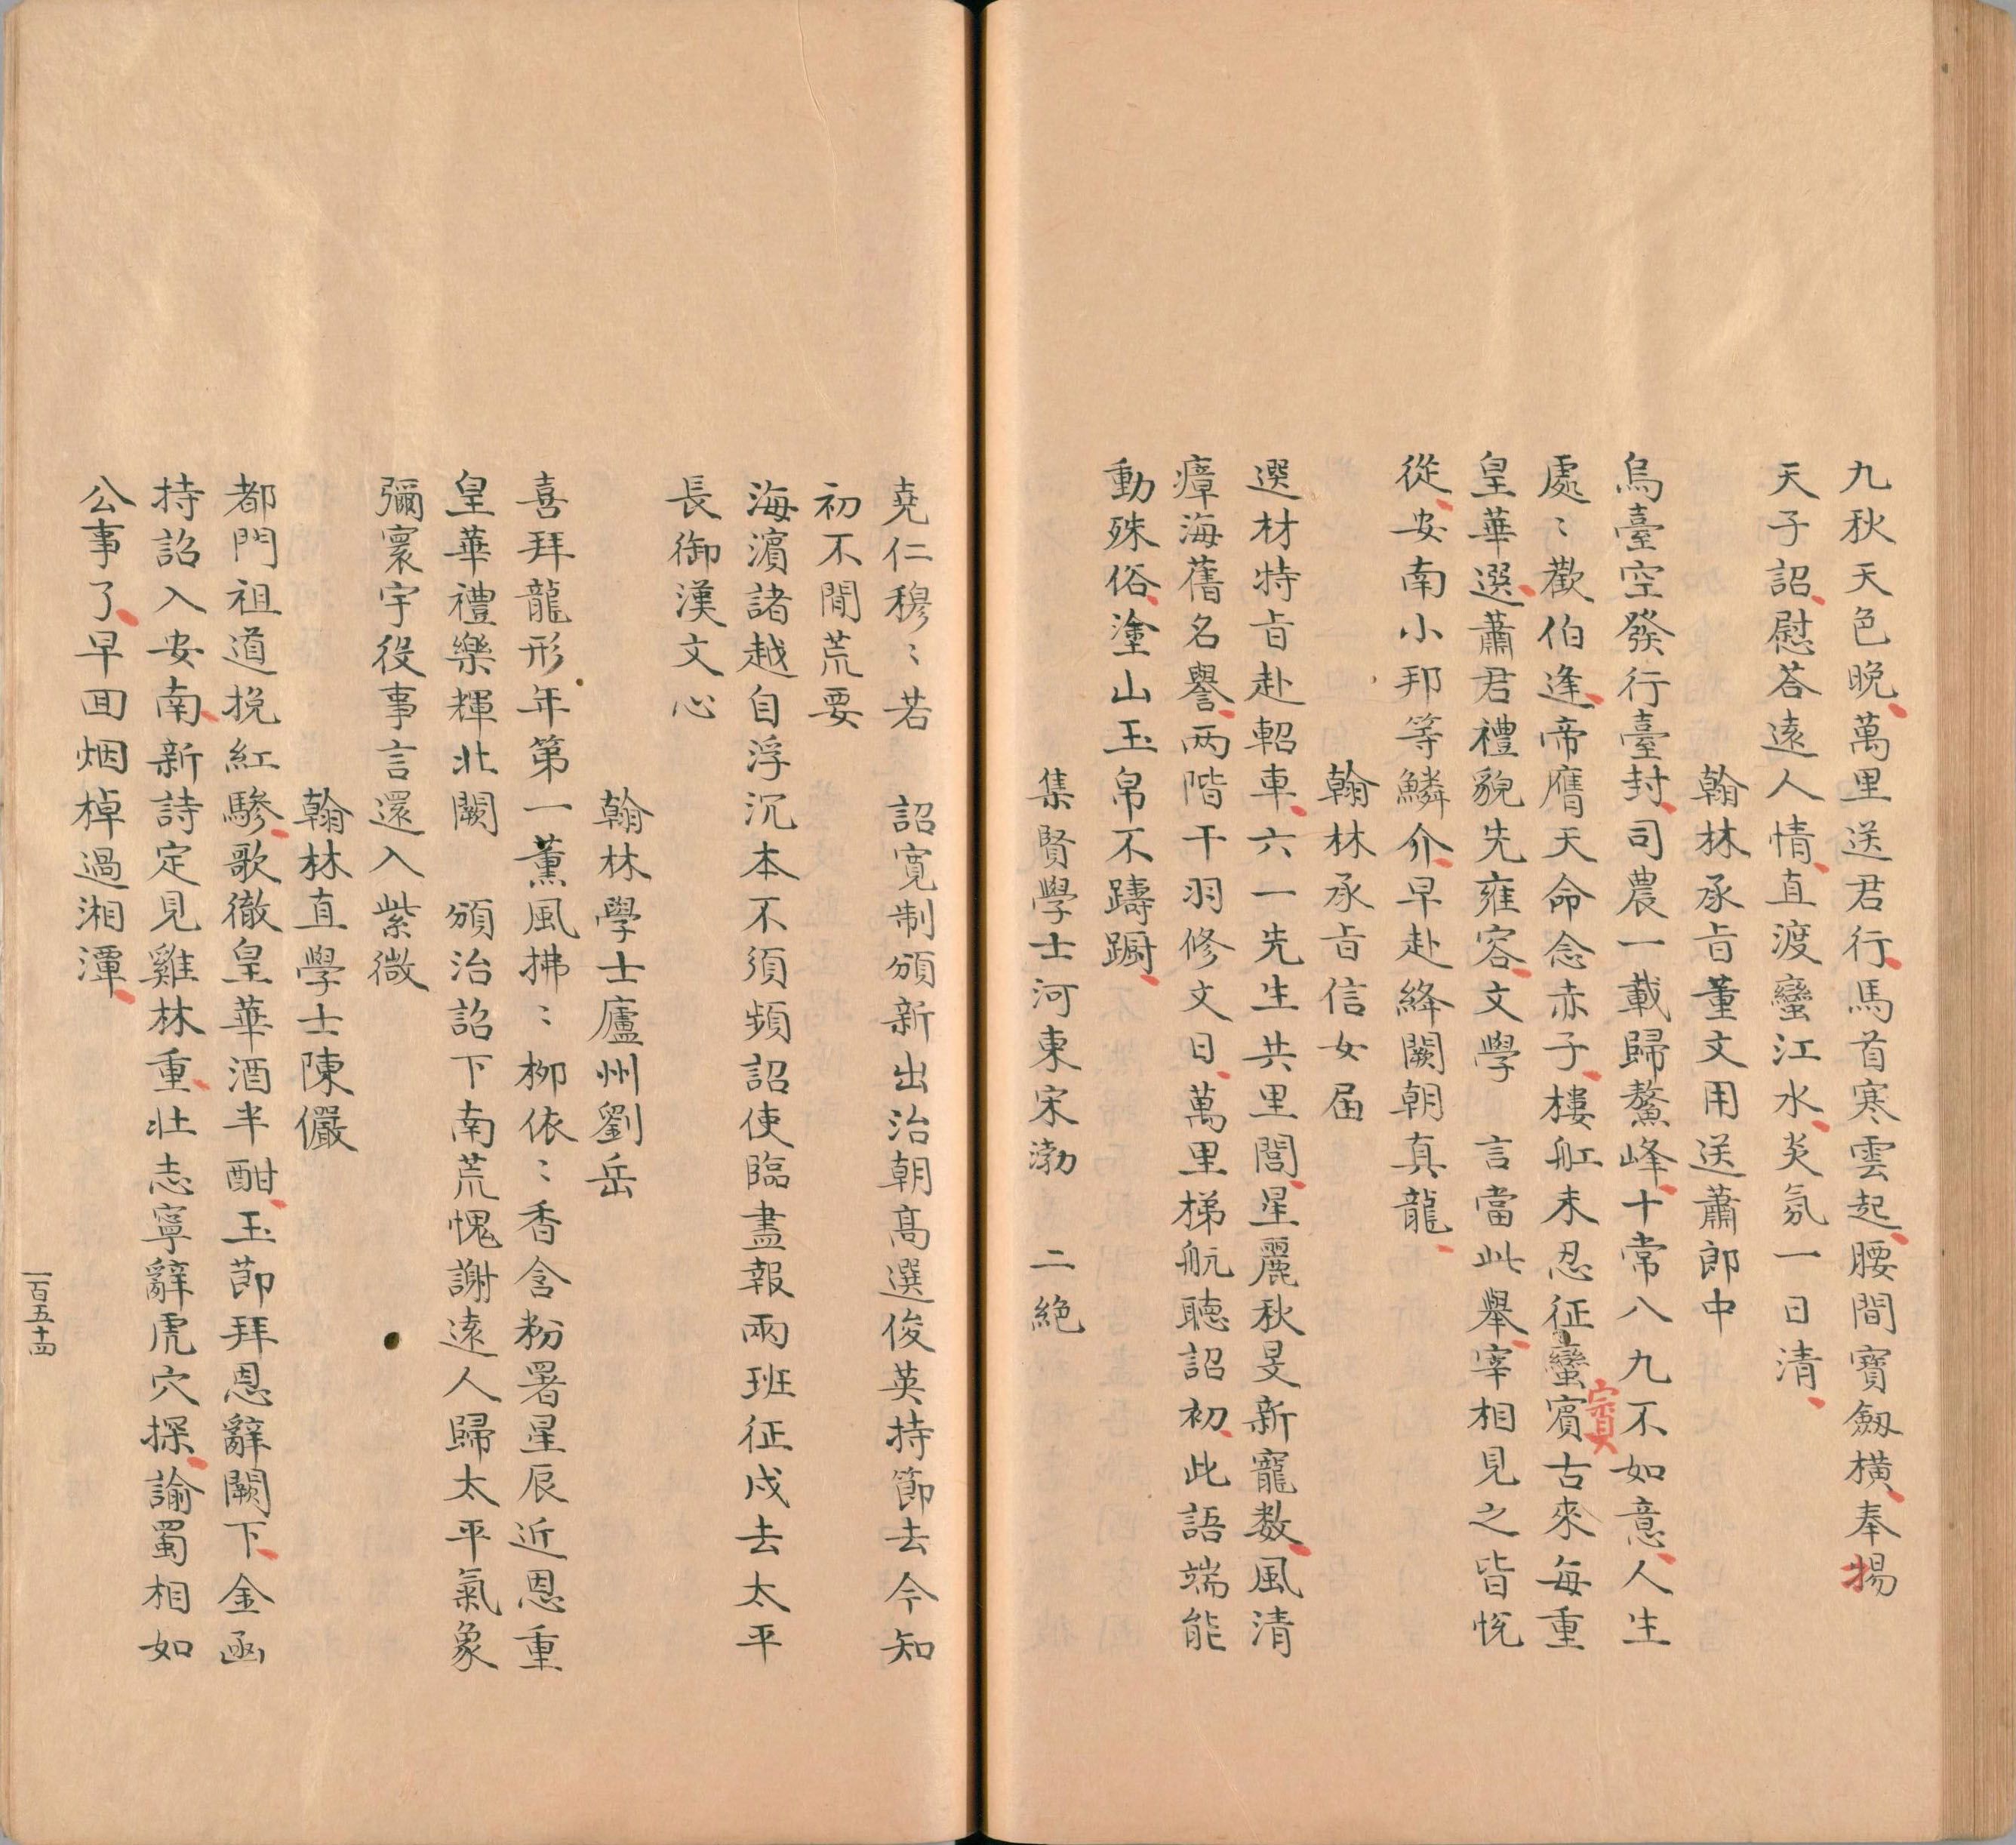 九秋天色晚萬里送君行馬首寒雲起腰間寶劔橫奉揚
天子詔慰荅遠人情直渡蠻江水炎氛一日清
翰林承旨董文用送蕭郎中
烏臺空發行臺封司農一載歸鰲峰十常八九不如意人生
處〻歡伯逢帝膺天命念赤子樓舡未忍征蠻賓古來每重
賨
皇華選蕭君禮貌先雍容文學 言當此舉宰相見之皆悅
從安南小邦等鱗介早赴絳闕朝真龍
翰林承旨信女屆
選材特旨赴軺車六一先生共里閭星麗秋旻新寵数風清
瘴海舊名譽两階干羽修文日萬里梯航聽詔初此語端能
動殊俗塗山玉帛不躊蹰
集賢學士河東宋渤 二絶
堯仁穆〻若 詔寛制頒新出治朝髙選俊英持節去今知
初不間荒要
海濵諸越自浮沉本不須頻詔使臨盡報兩班征戍去太平
長御漢文心
翰林學士廬州劉岳
喜拜龍形年第一薰風拂〻柳依〻香含粉署星辰近恩重
皇華禮樂輝北闕 頒治詔下南荒愧謝遠人歸太平氣象
彌寰宇役事言還入紫微
翰林直學士陳儼
都門祖道挽紅驂歌徹皇華酒半酣玉節拜恩辭闕下金函
持詔入安南新詩定見雞林重壯志寧辭虎穴探諭蜀相如
公事了早囬烟棹過湘潭
一百五十四